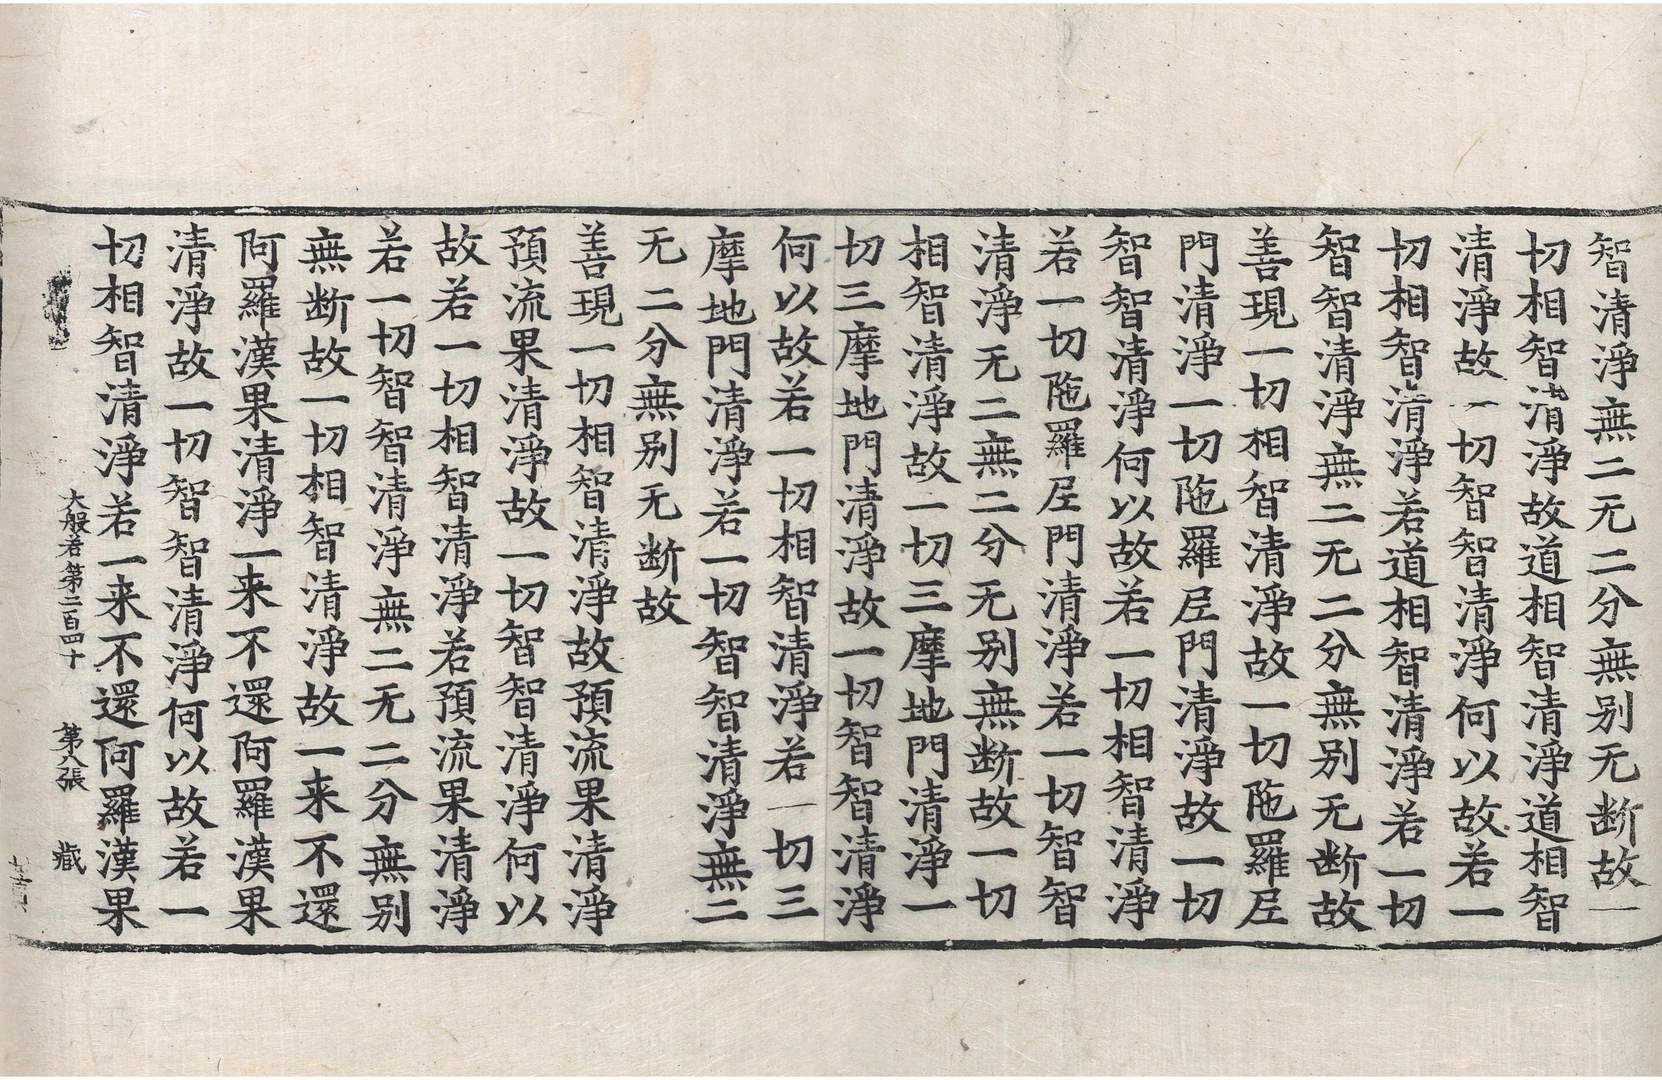 智清淨無二无二分無別无断故一
切相智清淨故道相智清淨道相智
清淨故一切智智清淨何以故若一
切相智清淨若道相智清淨若一切
智智清淨無二无二分無別无断故
善現一切相智清淨故一切陁羅尼
門清淨一切陁羅尼門清淨故一切
智智清淨何以故若一切相智清淨
若一切陁羅尼門清淨若一切智智
清淨无二無二分无別無断故一切
相智清淨故一切三摩地門清淨一
切三摩地門清淨故一切智智清淨
何以故若一切相智清淨若一切三
摩地門清淨若一切智智清淨無二
无二分無別无断故
善現一切相智清淨故預流果清淨
預流果清淨故一切智智清淨何以
故若一切相智清淨若預流果清淨
若一切智智清淨無二无二分無別
無断故一切相智清淨故一来不還
阿羅漢果清淨一来不還阿羅漢果
清淨故一切智智清淨何以故若一
切相智清淨若一来不還阿羅漢果
大般若第二百四十 第八張 藏